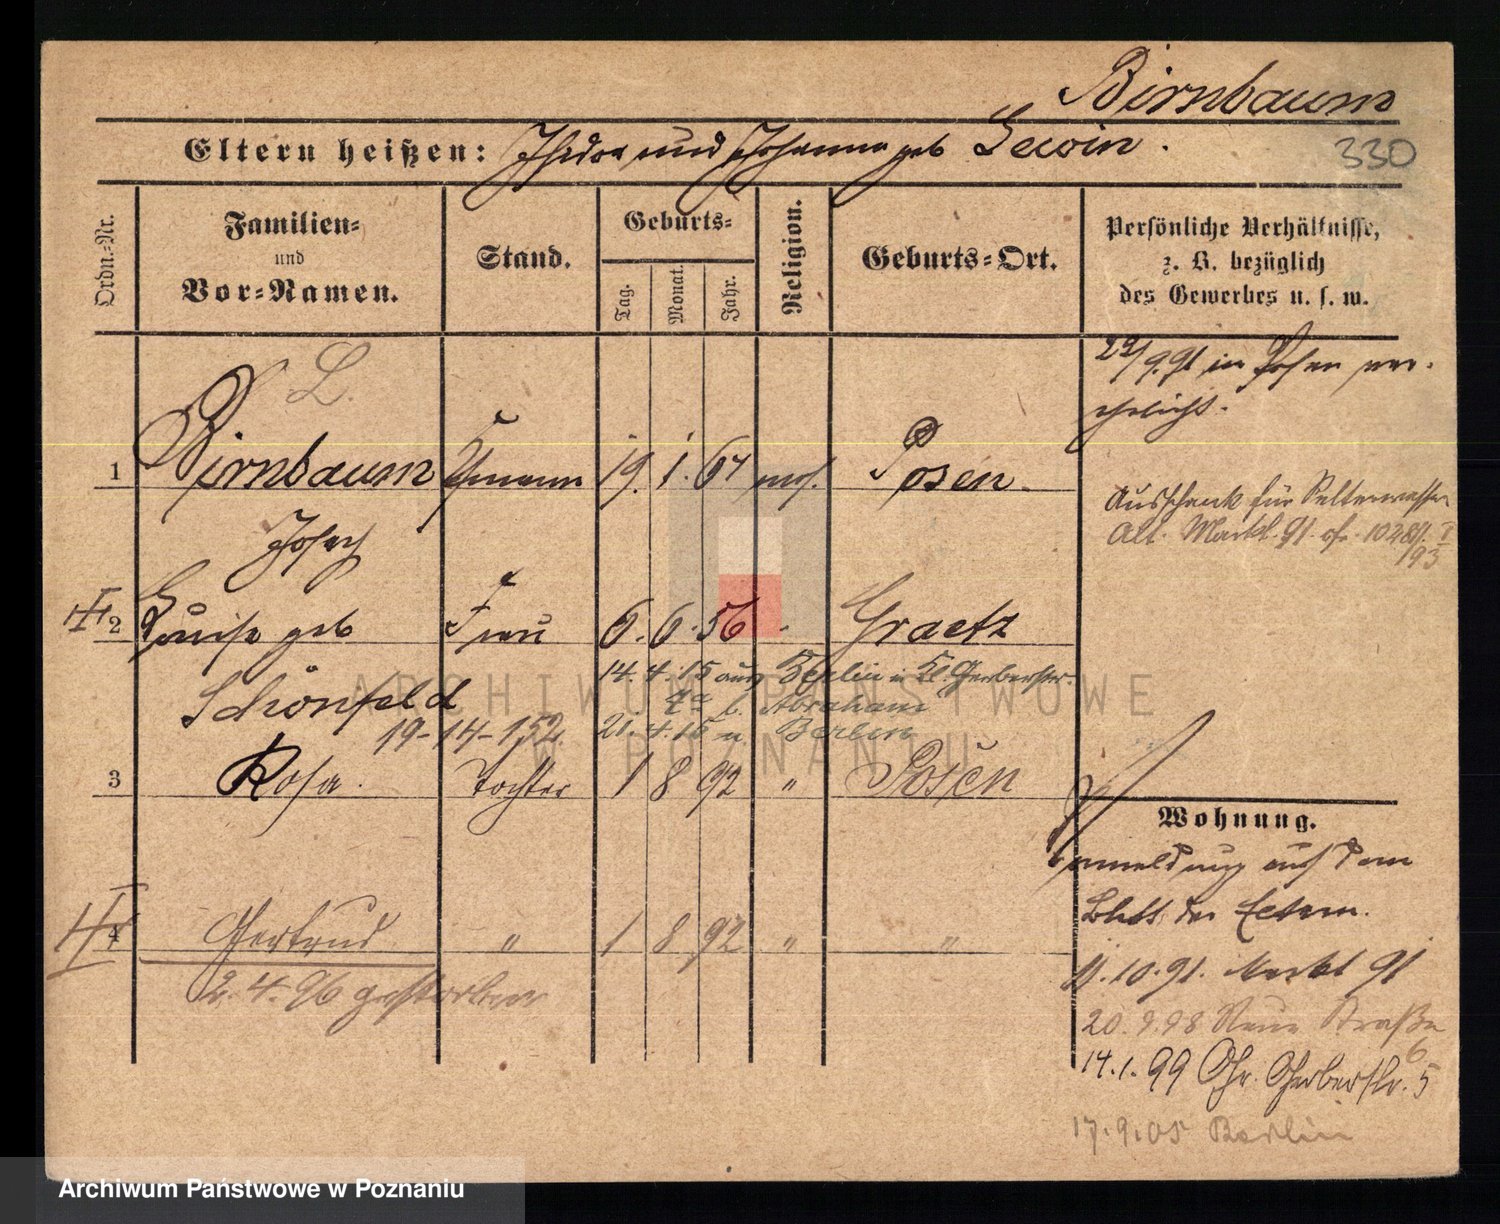 Birnbaum
Eltern heißen: Isidor und Johanna geb Lewin.
330
Ordn.-Nr.
Familien-
und
Vor-Namen.
Stand.
Geburts-
Tag.
Monat.
Jahr.
Religion.
Geburts-Ort.
Persönliche Verhältnisse,
z. B. bezüglich
des Gewerbes u. s. w.
L.
29/9.91 in Posen ver-
ehelicht.
1 Birnbaum Ehmann 19. 1. 67 mos. Posen
Josef
Ausschank für Selterwasser
Alt. Markt. 91
2 Louise geb Frau 6. 6. 56 Graetz
Schönfeld
14. 4. 15 aus Berlin in Kl. Gerberstr.
7a b. Abraham
19-14-152
21. 4. 15 n. Berlin
3 Rosa. Tochter 1 8 92 " Posen
Wohnung.
Anmeldung auf dem
Blatt der Eltern.
4 Gertrud " 1 8 92 " "
2. 4. 96 gestorben
11. 10. 91. Markt 91
20. 9. 98 Neue Straße
6
14. 1. 99 Gr. Gerberstr. 5
17. 9. 05 Berlin
ARCHIWUM PAŃSTWOWE
W POZNANIU
Archiwum Państwowe w Poznaniu